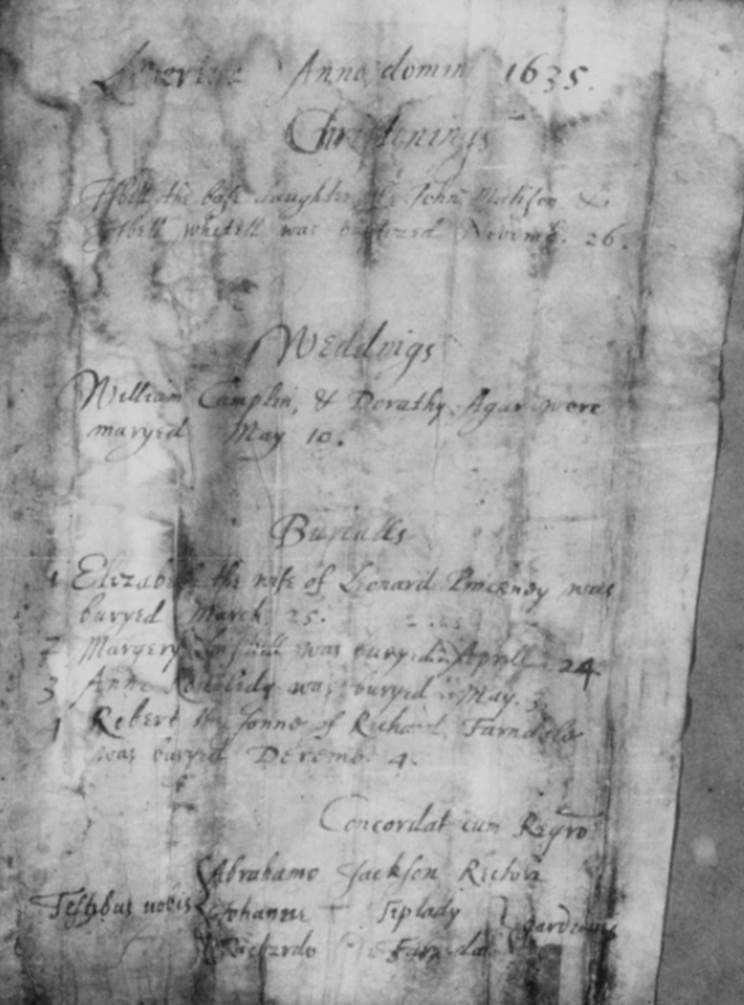 Anno domin 1635.
Christenings
Isbell the base daughter of John Matison &
Isbell whitell was baptized Novemb. 26.
Weddings
William Camplin, & Dorathy Agar were
maryed May 10.
Burialls
1 Elezabeth the wife of Leonard Pinckney was
buryed March 25.
2 Margery was buryed in Aprill 24
3 Anne was buryed in May. 3
Robert the sonne of Richard Farndale
was buryed Decemb. 4.
Concordat cum Regro
Abrahamo Jackson Rector
Testibus nobis Johanne Tiplady gardians
Richardo Farndale